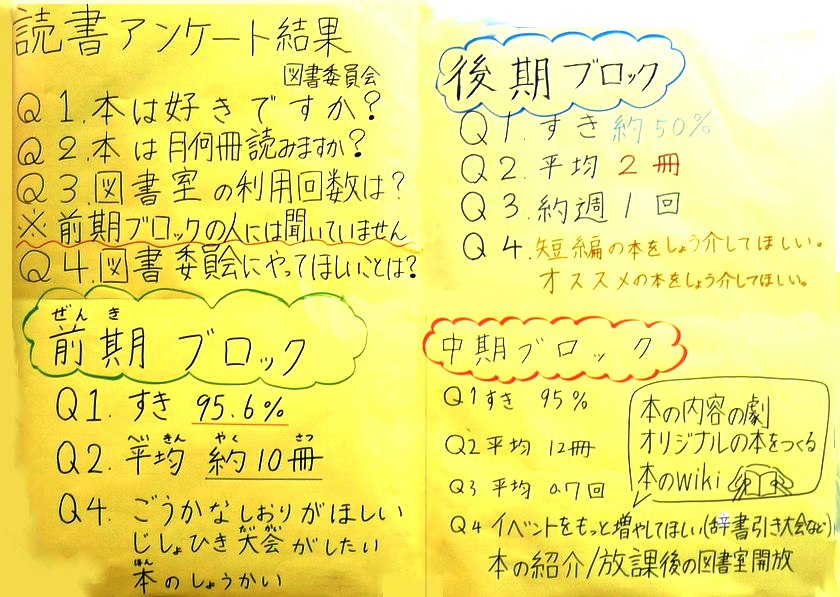 読書アンケート結果
図書委員会
Q1.本は好きですか?
Q2.本は月何冊読みますか?
Q3.図書室の利用回数は?
※前期ブロックの人には聞いていません
Q4.図書委員会にやってほしいことは?
ぜんき
前期ブロック
Q1.すき 95.6%
へいきん やく さつ
Q2.平均 約10冊
Q4.ごうかなしおりがほしい
たいかい
じしょひき大会がしたい
ほん
本のしょうかい
後期ブロック
Q1.すき約50%
Q2.平均2冊
Q3.約週1回
Q4.短編の本をしょう介してほしい。
オススメの本をしょう介してほしい。
中期ブロック
Q1すき 95%
Q2平均 12冊
Q3平均 0.7回
本の内容の劇
オリジナルの本をつくる
本のwiki
Q4 イベントをもっと増やしてほしい(辞書引き大会など)
本の紹介/放課後の図書室開放